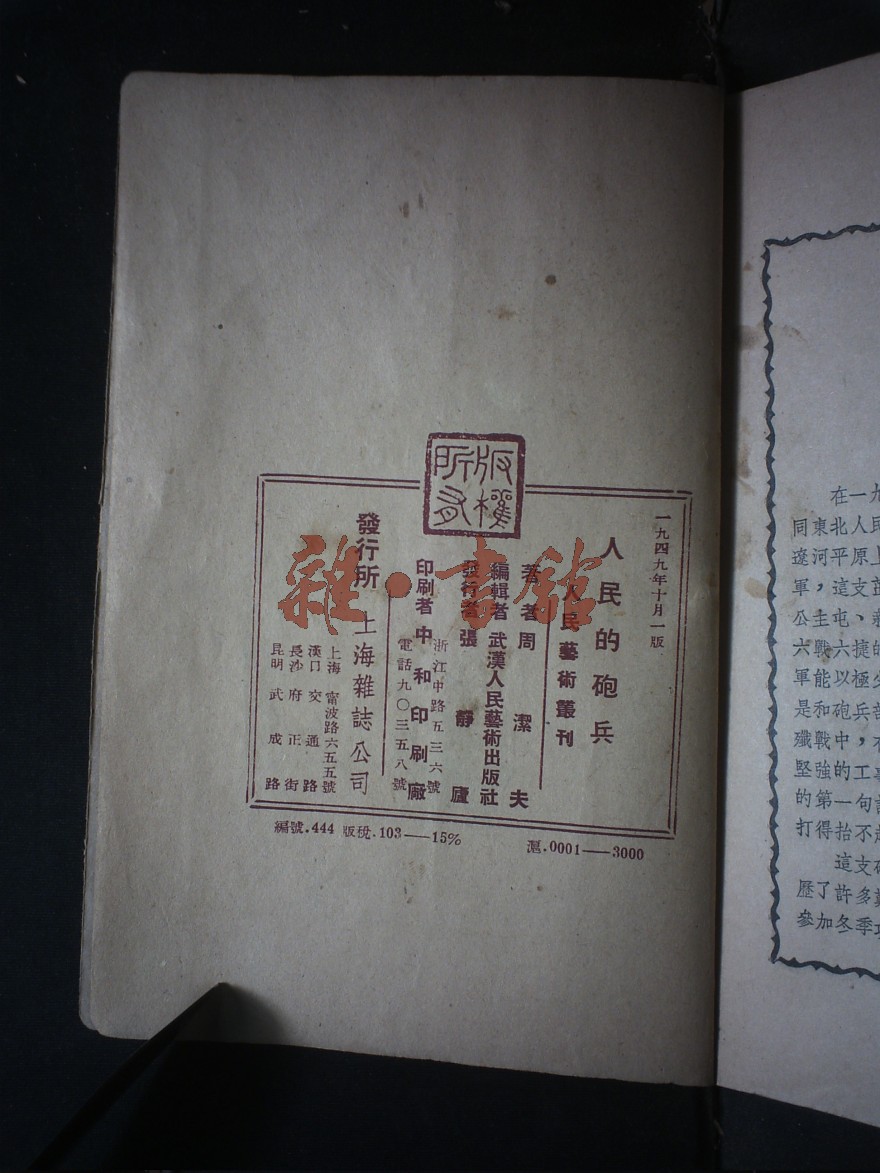 版權
所有
一九四九年十月一版
人民的砲兵
人民藝術叢刊
著者 周潔夫
編輯者 武漢人民藝術出版社
發行者 張靜廬
浙江中路五三六號
印刷者 中和印刷廠
電話九〇三五八號
發行所 上海雜誌公司
上海 甯波路六五五號
漢口 交通路
長沙 府正街
昆明 武成路
編號.444 版稅.103——15%
滬.0001——3000
雜·書館
在一九
同東北人民
遼河平原上
軍，這支
公主屯、
六戰六捷的
軍能以極
是和砲兵
殲戰中，
堅強的工事
的第一句
打得抬不
這支
歷了許多
參加冬季